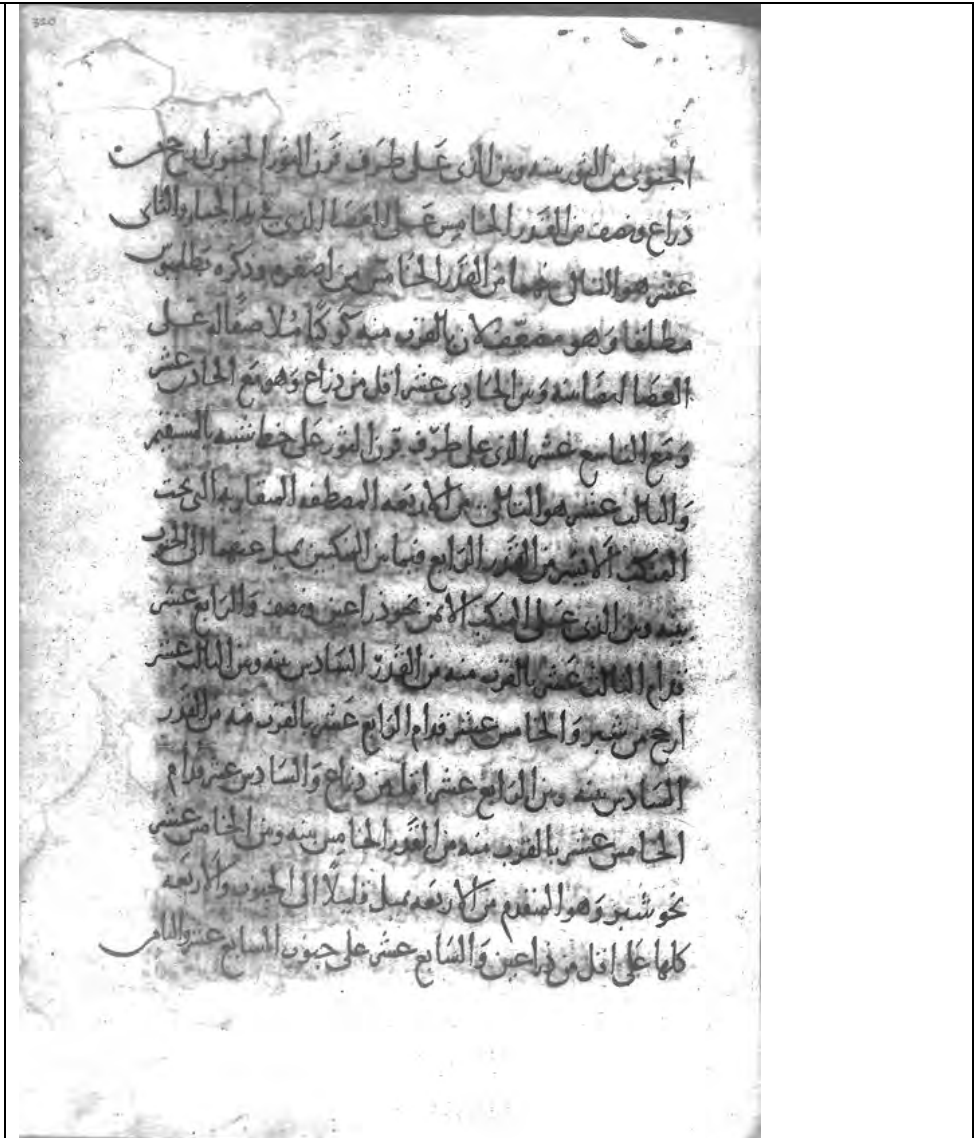 320
الجنوبى من الثور بينه وبين الذى على طرف قرن الثور الجنوبى ارجح من
ذراع ونصف من القدر الخامس على العصا الذى فى يد الجبار والثانى
عشر هو التالى منهما من القدر الخامس من اصغره وذكره بطلميوس
مطلقا وهو مضعف لان بالقرب منه كوكبا ملاصقا له على
العصا ايضا بينه وبين الحادى عشر اقل من ذراع وهو مع الحادى عشر
ومع التاسع عشر الذى على طرف قرن الثور على خط شبيه بالمستقيم
والثالث عشر هو التالى من الاربعة المصطفه المتقاربه التى تحت
المنكب الايسر من القدر الرابع فيما بين المنكبين يميل عنهما الى الجنوب
بينه وبين الذى على المنكب الايمن نحو ذراعين ونصف والرابع عشر
قدام الثالث عشر بالقرب منه من القدر السادس بينه وبين الثالث عشر
ارجح من شبر والخامس عشر قدام الرابع عشر بالقرب منه من القدر
السادس بينه وبين الرابع عشر اقل من ذراع والسادس عشر قدام
الخامس عشر بالقرب منه من القدر الخامس بينه وبين الخامس عشر
نحو شبر وهو المتقدم من الاربعه يميل قليلا الى الجنوب والاربعه
كلها على اقل من ذراعين والسابع عشر على جنوب السابع عشر والثامن